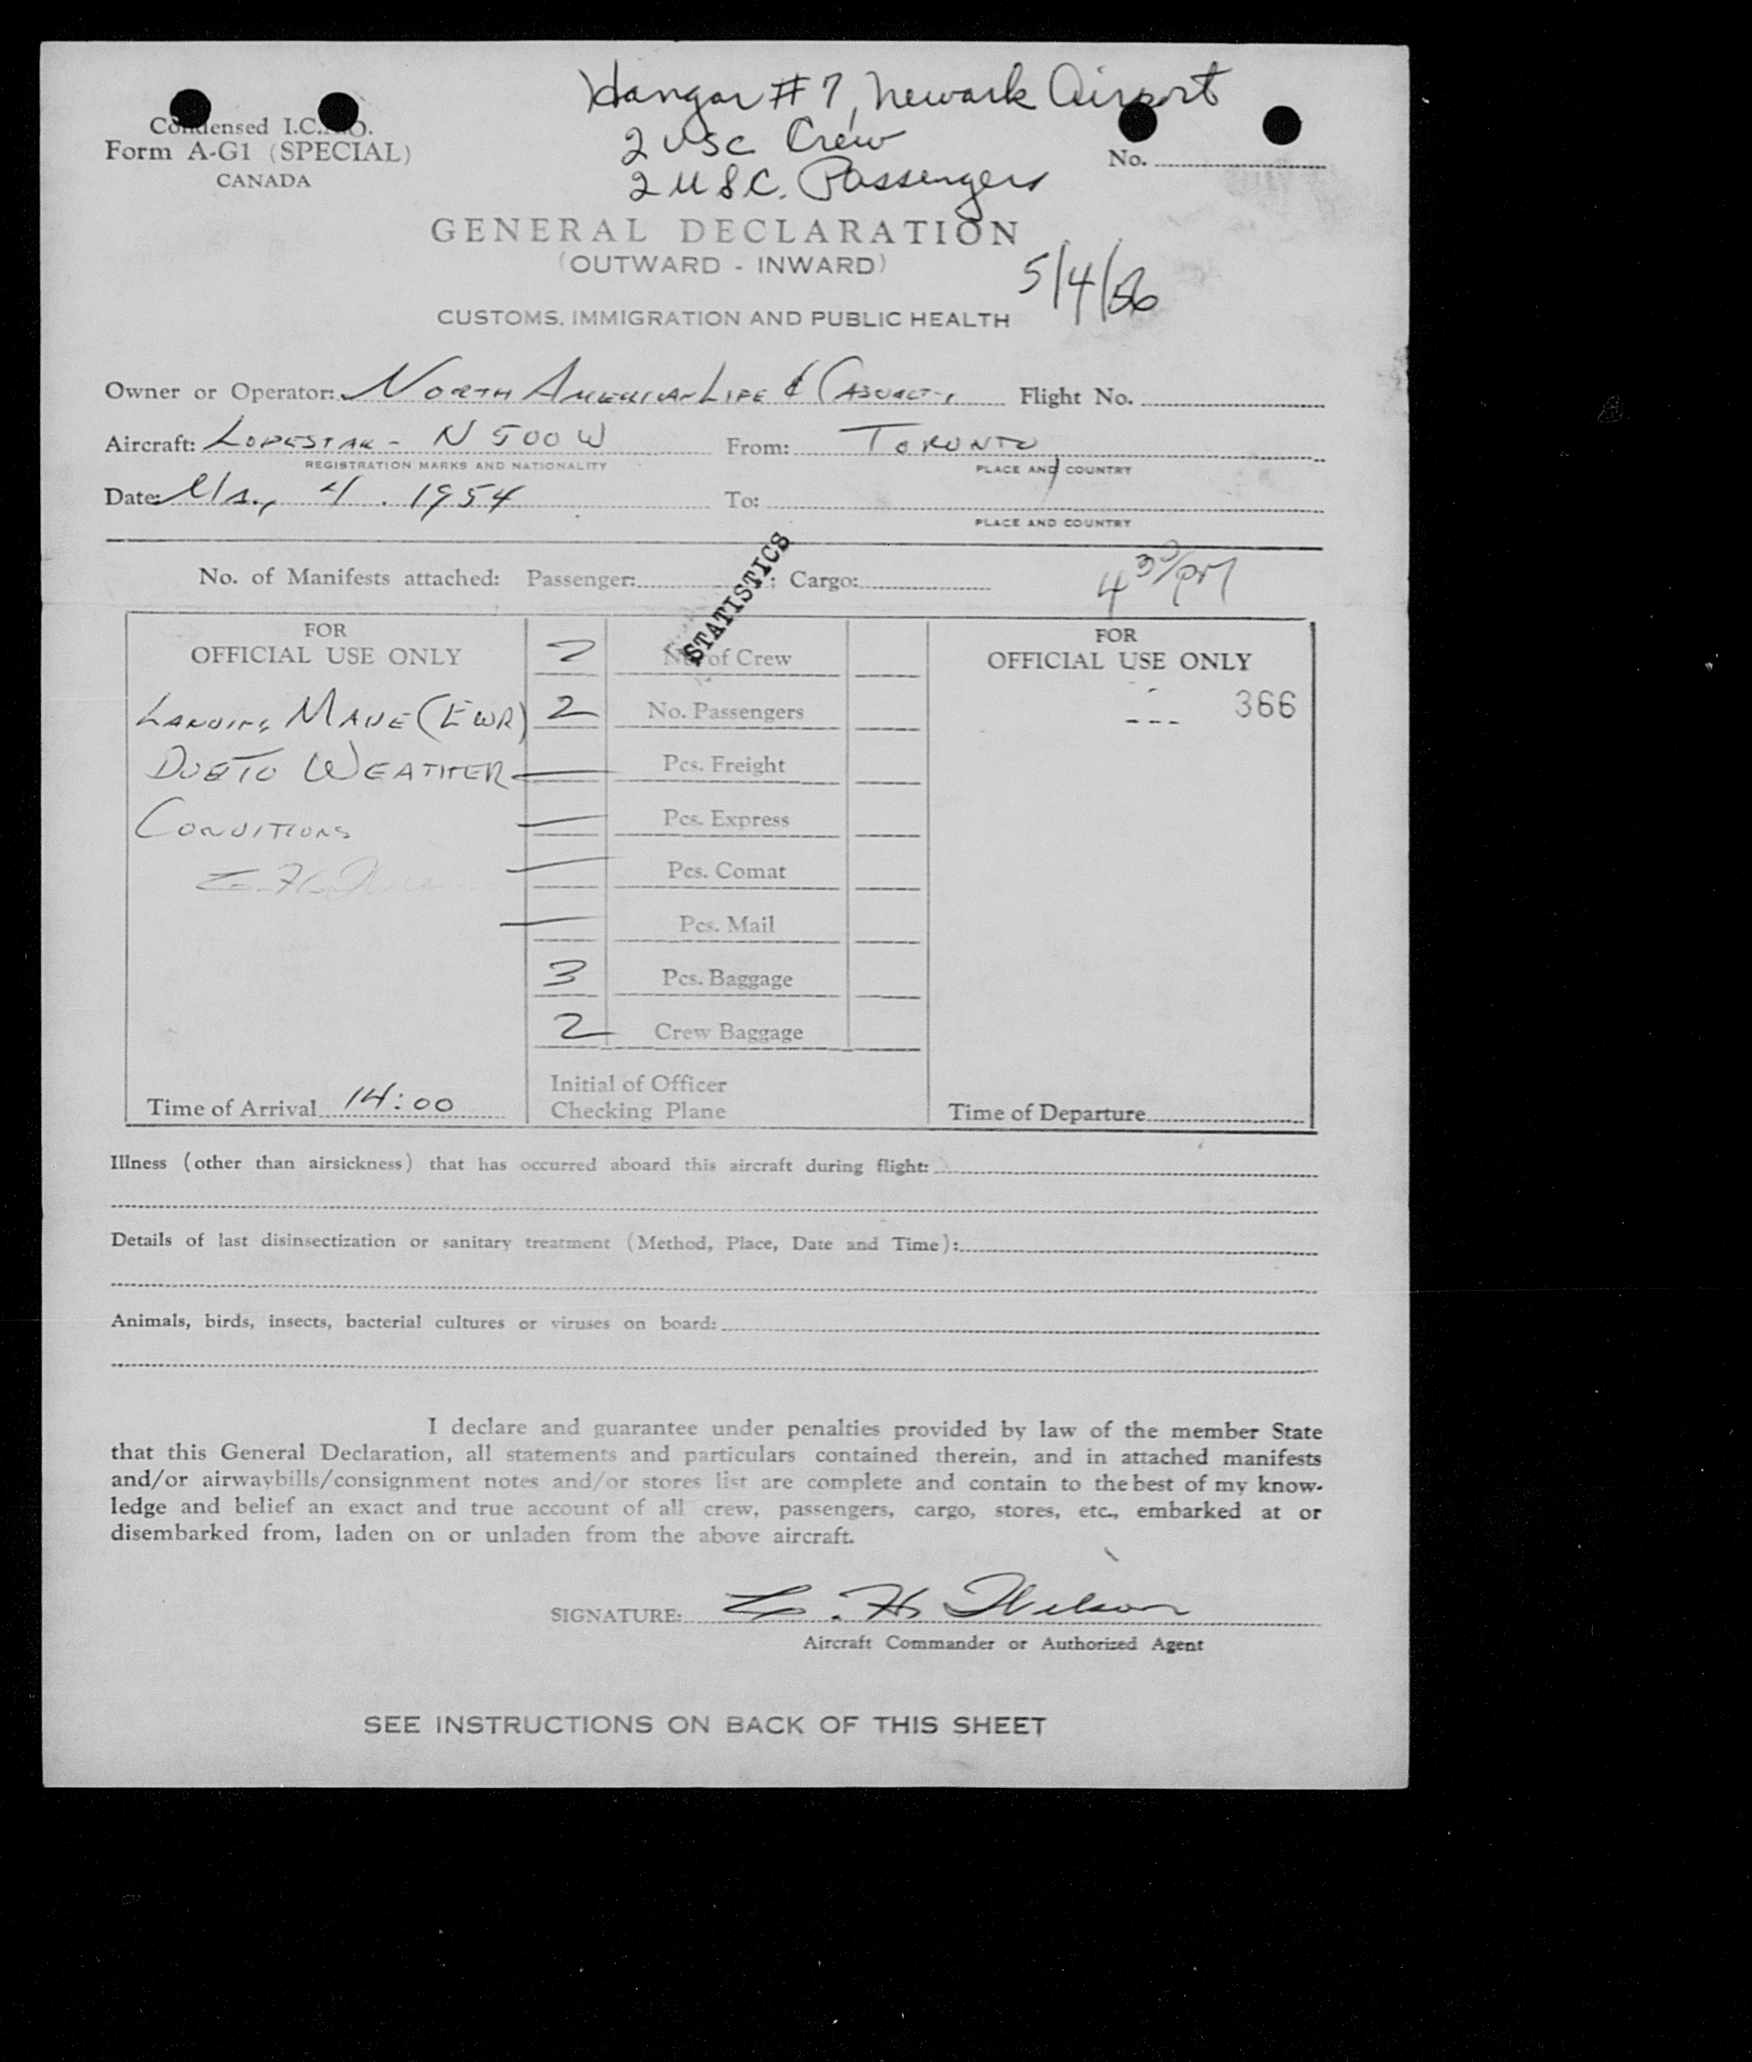 Hangar #7, Newark Airport
2 USC Crew
2 U.S.C. Passengers
Condensed I.C.A.O.
Form A-G1 (SPECIAL)
CANADA
No.
GENERAL DECLARATION
(OUTWARD - INWARD)
5/4/56
CUSTOMS, IMMIGRATION AND PUBLIC HEALTH
Owner or Operator: NORTH AMERICAN LIFE & CASUALTY Flight No.
Aircraft: LODESTAR - N 500 W From: TORONTO
REGISTRATION MARKS AND NATIONALITY PLACE AND COUNTRY
Date: May 4. 1954 To:
PLACE AND COUNTRY
STATISTICS
No. of Manifests attached: Passenger: ; Cargo:
4 30/PM
FOR
OFFICIAL USE ONLY
LANDING MADE (EWR)
DUE TO WEATHER
CONDITIONS
Time of Arrival 14:00
2 No. of Crew
2 No. Passengers
— Pcs. Freight
— Pcs. Express
— Pcs. Comat
— Pcs. Mail
3 Pcs. Baggage
2 Crew Baggage
Initial of Officer
Checking Plane
FOR
OFFICIAL USE ONLY
366
Time of Departure
Illness (other than airsickness) that has occurred aboard this aircraft during flight:
Details of last disinsectization or sanitary treatment (Method, Place, Date and Time):
Animals, birds, insects, bacterial cultures or viruses on board:
I declare and guarantee under penalties provided by law of the member State
that this General Declaration, all statements and particulars contained therein, and in attached manifests
and/or airwaybills/consignment notes and/or stores list are complete and contain to the best of my know-
ledge and belief an exact and true account of all crew, passengers, cargo, stores, etc., embarked at or
disembarked from, laden on or unladen from the above aircraft.
SIGNATURE: C. H. Wilson
Aircraft Commander or Authorized Agent
SEE INSTRUCTIONS ON BACK OF THIS SHEET